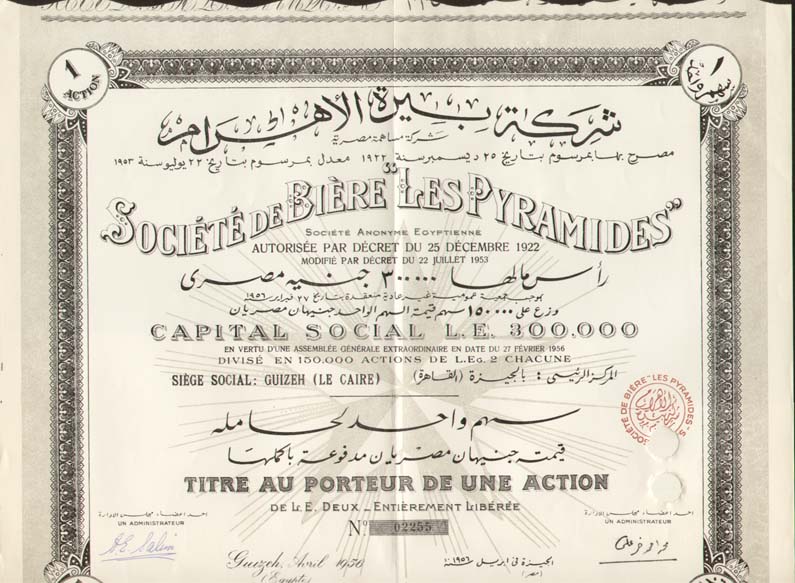 1
ACTION
١
سهم واحد
شركة بيرة الأهرام
شركة مساهمة مصرية
مصرح بها بمرسوم بتاريخ ٢٥ ديسمبر سنة ١٩٢٢ معدل بمرسوم بتاريخ ٢٢ يوليو سنة ١٩٥٣
SOCIÉTÉ DE BIÈRE "LES PYRAMIDES"
SOCIÉTÉ ANONYME EGYPTIENNE
AUTORISÉE PAR DÉCRET DU 25 DÉCEMBRE 1922
MODIFIÉ PAR DÉCRET DU 22 JUILLET 1953
رأس مالها ٣٠٠٠٠٠ جنيه مصرى
بموجب جمعية عمومية غير عادية منعقدة بتاريخ ٢٧ فبراير ١٩٥٦
وزع على ١٥٠٠٠٠ سهم قيمة السهم الواحد جنيهان مصريان
CAPITAL SOCIAL L.E. 300.000
EN VERTU D'UNE ASSEMBLÉE GÉNÉRALE EXTRAORDINAIRE EN DATE DU 27 FÉVRIER 1956
DIVISÉ EN 150.000 ACTIONS DE L.EG. 2 CHACUNE
SIÈGE SOCIAL: GUIZEH (LE CAIRE) المركز الرئيسى: بالجيزة (القاهرة)
SOCIÉTÉ DE BIÈRE "LES PYRAMIDES"
سهم واحد لحامله
قيمته جنيهان مصريان مدفوعة بأكملها
TITRE AU PORTEUR DE UNE ACTION
DE L.E. DEUX _ ENTIÈREMENT LIBÉRÉE
احد اعضاء مجلس الادارة
UN ADMINISTRATEUR
No. 02255
احد اعضاء مجلس الادارة
UN ADMINISTRATEUR
Guizeh, Avril 1956
(Egypte)
الجيزة فى ابريل ١٩٥٦
(مصر)